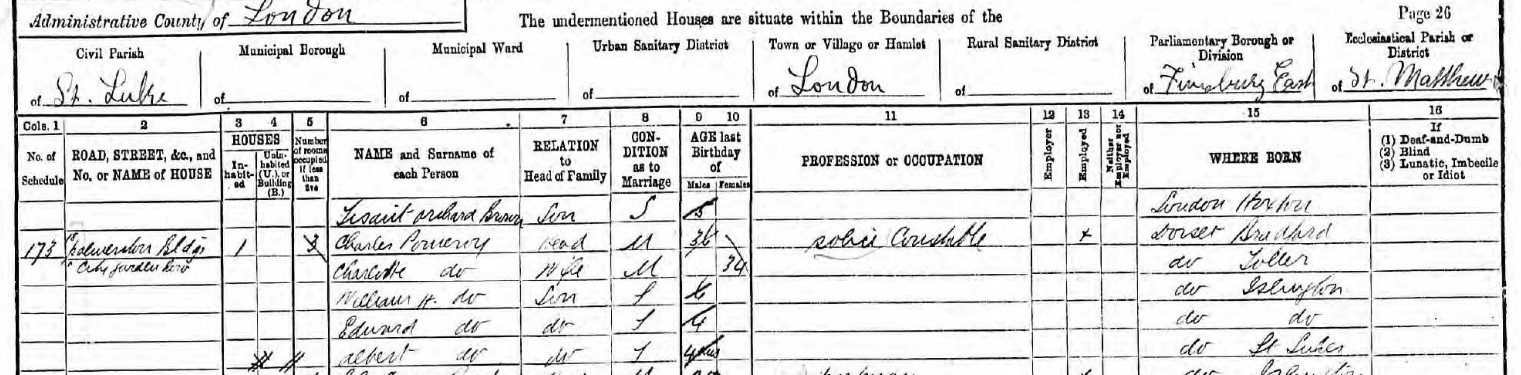 Administrative County of London The undermentioned Houses are situate within the Boundaries of the Page 26
Civil Parish Municipal Borough Municipal Ward Urban Sanitary District Town or Village or Hamlet Rural Sanitary District Parliamentary Borough or Division Ecclesiastical Parish or District
of St. Luke of of of of London of of Finsbury East of St. Matthew
Cols. 1 2 3 4 5 6 7 8 9 10 11 12 13 14 15 16
No. of Schedule ROAD, STREET, &c., and No. or NAME of HOUSE HOUSES In-habit-ed Unin-habited (U.), or Building (B.) Number of rooms occupied if less than five NAME and Surname of each Person RELATION to Head of Family CON-DITION as to Marriage AGE last Birthday of Males Females PROFESSION or OCCUPATION Employer Employed Neither Employer nor Employed WHERE BORN If (1) Deaf-and-Dumb (2) Blind (3) Lunatic, Imbecile or Idiot
Orchard Brown Son S 5 London Hoxton
173 Palmerston Bldgs 1 3 Charles Pomeroy Head M 36 Police Constable x Dorset Bradford
City Garden Row Charlotte do Wife M 34 do Toller
William H. do Son S 6 do Islington
Edward do do S 4 do do
Albert do do S do St Lukes